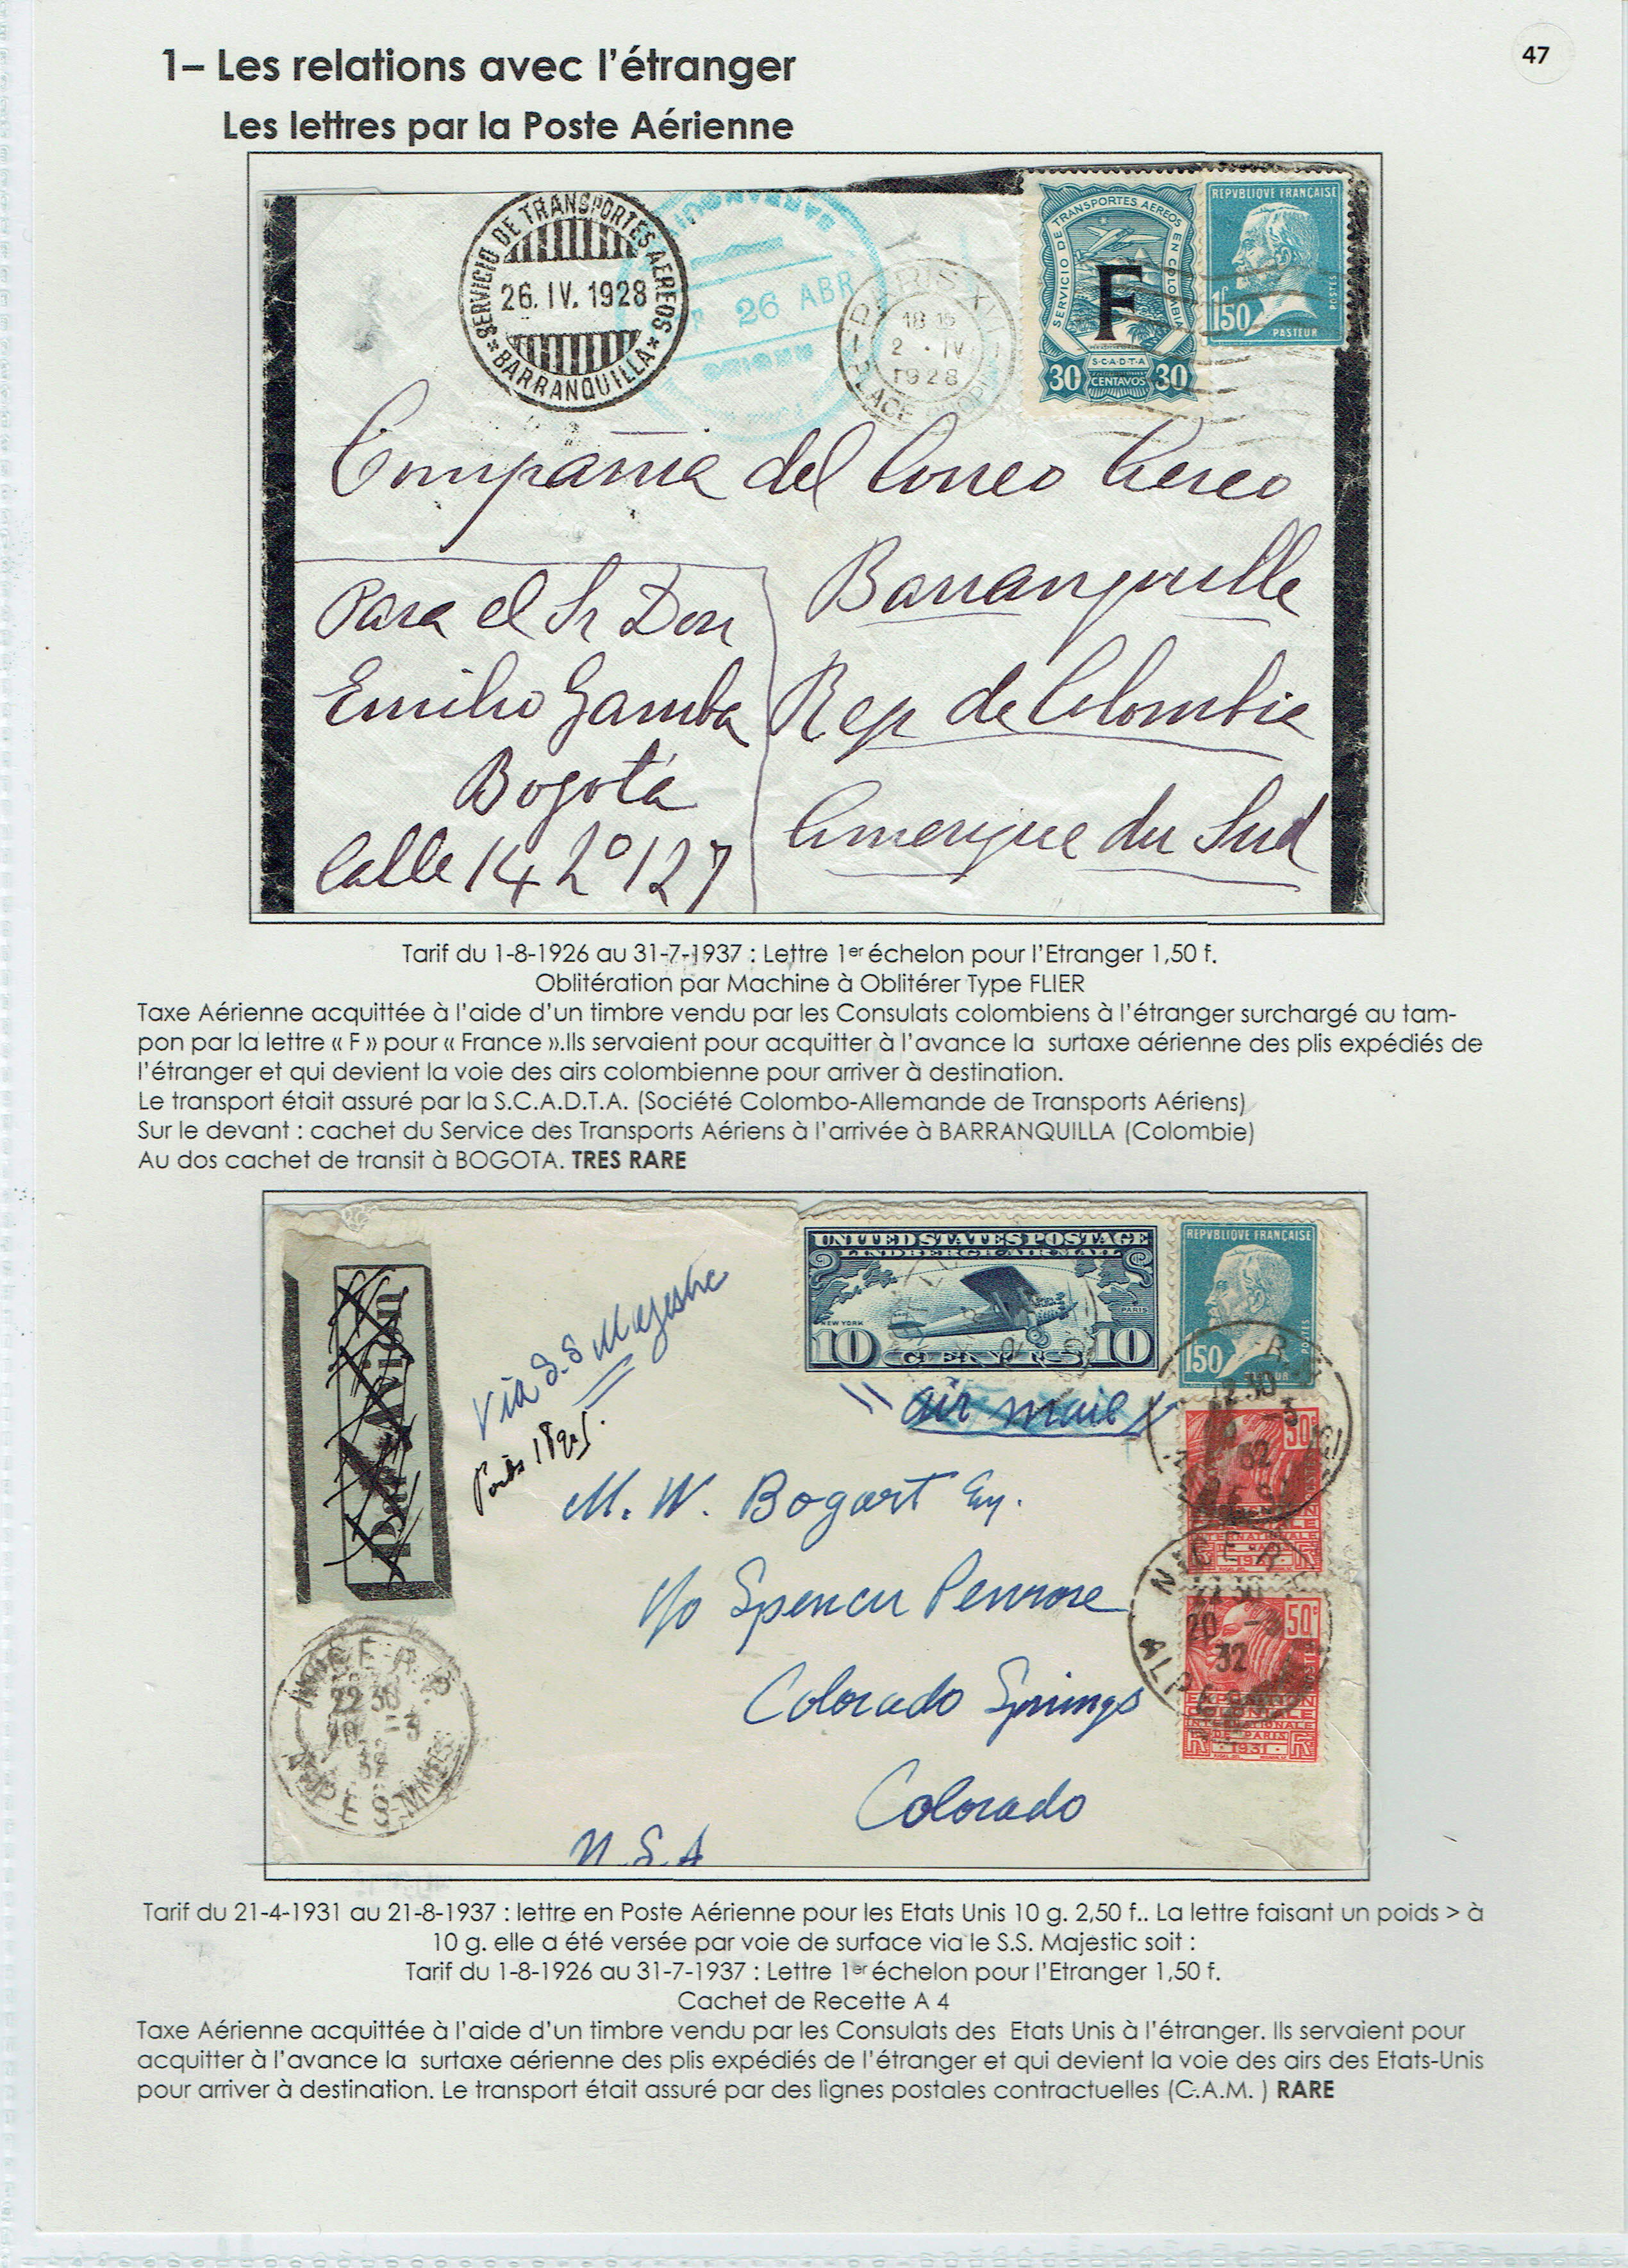 1– Les relations avec l'étranger
47
Les lettres par la Poste Aérienne
SERVICIO DE TRANSPORTES AEREOS
26. IV. 1928
BARRANQUILLA
26 ABR
PARIS XVI
18 15
2 · IV
1928
SERVICIO DE TRANSPORTES AEREOS EN COLOMBIA
F
S·C·A·D·T·A
30 CENTAVOS 30
REPVBLIQVE FRANÇAISE
1f50
POSTES
PASTEUR
Compania del Correo Aereo
Barranquilla
Rep de Colombie
Amerique du Sud
Para el Sr Don
Emilio Gamba
Bogotá
Calle 14 No 127
Tarif du 1-8-1926 au 31-7-1937 : Lettre 1er échelon pour l'Etranger 1,50 f.
Oblitération par Machine à Oblitérer Type FLIER
Taxe Aérienne acquittée à l'aide d'un timbre vendu par les Consulats colombiens à l'étranger surchargé au tam-
pon par la lettre « F » pour « France ».Ils servaient pour acquitter à l'avance la surtaxe aérienne des plis expédiés de
l'étranger et qui devient la voie des airs colombienne pour arriver à destination.
Le transport était assuré par la S.C.A.D.T.A. (Société Colombo-Allemande de Transports Aériens)
Sur le devant : cachet du Service des Transports Aériens à l'arrivée à BARRANQUILLA (Colombie)
Au dos cachet de transit à BOGOTA. TRES RARE
Par Avion
via S.S Majestic
UNITED STATES POSTAGE
LINDBERGH AIR MAIL
NEW YORK
PARIS
10 CENTS 10
REPVBLIQVE FRANÇAISE
1f50
POSTES
air mail
M. W. Bogart Esq.
c/o Spencer Penrose
Colorado Springs
Colorado
U.S.A
50c
50c
EXPOSITION
COLONIALE
INTERNATIONALE
DE PARIS
1931
NICE R.P.
22 30
20 -3
32
ALPES MMES
NICE R.P.
22 30
20 -3
32
Tarif du 21-4-1931 au 21-8-1937 : lettre en Poste Aérienne pour les Etats Unis 10 g. 2,50 f.. La lettre faisant un poids > à
10 g. elle a été versée par voie de surface via le S.S. Majestic soit :
Tarif du 1-8-1926 au 31-7-1937 : Lettre 1er échelon pour l'Etranger 1,50 f.
Cachet de Recette A 4
Taxe Aérienne acquittée à l'aide d'un timbre vendu par les Consulats des Etats Unis à l'étranger. Ils servaient pour
acquitter à l'avance la surtaxe aérienne des plis expédiés de l'étranger et qui devient la voie des airs des Etats-Unis
pour arriver à destination. Le transport était assuré par des lignes postales contractuelles (C.A.M. ) RARE